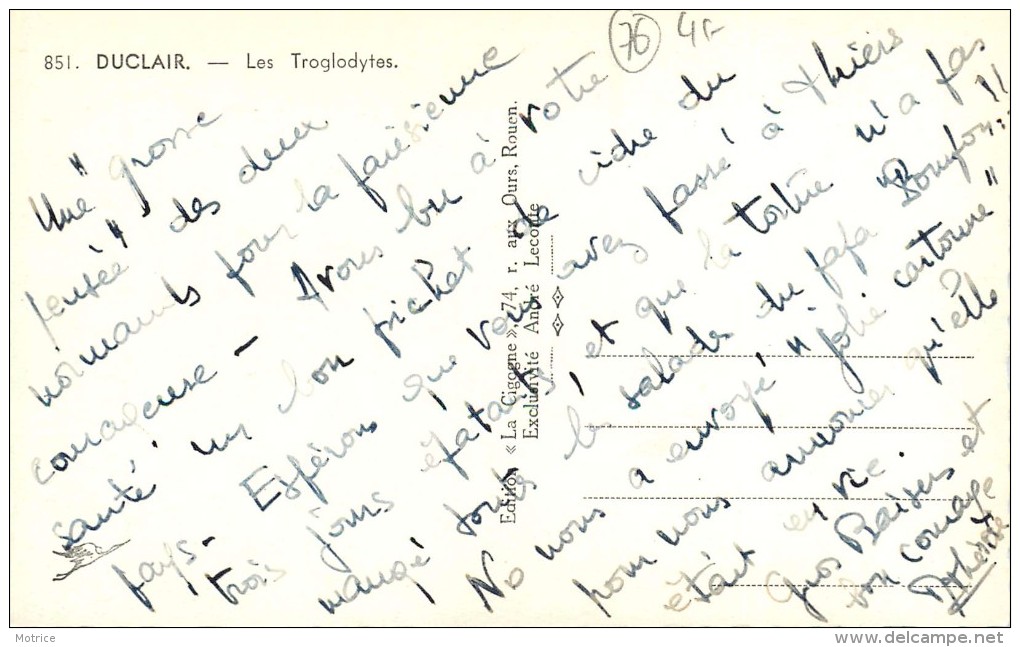 851. DUCLAIR. — Les Troglodytes.
76 4F
Edition « La Cigogne », 74, r. aux Ours, Rouen.
Exclusivité André Leconte
Une "grosse
pensée" des deux
normands pour la parisienne
courageuse - Avons bu à votre
santé un bon pichet de cidre du
pays - Espérons que vous avez passé à Thiers
trois jours épatants et que la tortue n'a pas
mangé toutes les salades du papa "Bonpon"!!
No nous a envoyé "jolie cartoune"
pour nous annoncer qu'elle
était en vie.
Gros Baisers et
bon courage
Thérèse
Motrice
www.delcampe.net